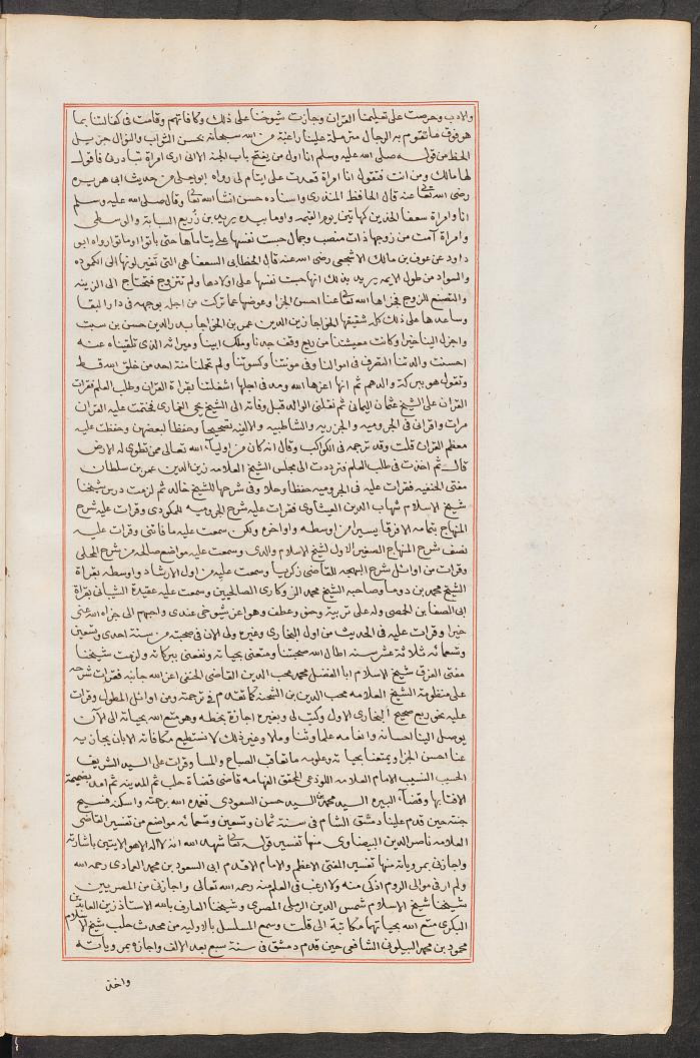 والادب وحرصت على تعليمنا القران وجازت شيوخنا على ذلك وكافاتهم وقامت في كفالتنا بما
هو فوق ما تقوم به الرجال مترملة علينا راغبة من الله سبحانه بحسن الثواب والنوال جزيل
الحظ من قوله صلى الله عليه وسلم انا اول من يفتح باب الجنة الا اني ارى امراة تبادرني فاقول
لها مالك ومن انت فتقول انا امراة قعدت على ايتام لي رواه ابو يعلى من حديث ابي هريره
رضي الله تعالى عنه قال الحافظ المنذري واسناده حسن انشا الله تعالى وقال صلى الله عليه وسلم
انا وامراة سعفا الخدين كهاتين يوم القيمه واوما بيده يزيد بن زريع السبابة والوسطى
وامراة آمت من زوجها ذات منصب وجمال حبست نفسها على يتاماها حتى بانوا او ماتوا رواه ابو
داود عن عوف بن مالك الاشجعي رضي الله عنه قال الخطابي السعفا هي التي تغير لونها الى الكموده
والسواد من طول الايمه يريد بذلك انها حبست نفسها على اولادها ولم تتزوج فتحتاج الى الزينه
والتصنع للزوج فجزاها الله تعالى عنا احسن الجزا وعوضها عما تركت من اجله بوجهه في دار البقا
وساعدها على ذلك كله شقيقها الخواجا زين الدين عمر بن الخواجا بدر الدين حسن بن سبت
واجزل الينا خيرا وكانت معيشتنا من ريع وقف جدنا وملك ابينا وميراثه الذي تلقيناه عنه
احسنت والدتنا التصرف في اموالنا وفي مونتنا وكسوتنا ولم تحملنا منة احد من خلق الله قط
وتقول هو ببركة والدهم ثم انها اعزها الله ومد في اجلها اشغلتنا بقراة القران وطلب العلم فقرات
القران على الشيخ عثمان اليماني ثم نقلني الوالد قبل وفاته الى الشيخ يحي العماري فختمت عليه القران
مرات واقراني في الاجروميه والجزريه والشاطبيه والالفيه تصحيحا وحفظا لبعضهن وحفظت عليه
معظم القران قلت وقد ترجمه في الكواكب وقال انه كان من اولياء الله تعالى ممن تطوى له الارض
قال ثم اخذت في طلب العلم فترددت الى مجلس الشيخ العلامه زين الدين عمر بن سلطان
مفتي الحنفيه فقرات عليه في الاجروميه حفظا وحلا وفي شرحها للشيخ خالد ثم لزمت درس شيخنا
شيخ الاسلام شهاب الدين العيثاوي فقرات عليه شرح الاجروميه للمكودي وقرات عليه شرح
المنهاج بتمامه الا فرقا يسيرا من اوسطه واواخره ولكن سمعت عليه ما فاتني وقرات عليه
نصف شرح المنهاج الصغير الاول لشيخ الاسلام والدي وسمعت عليه مواضع صالحه من شرح المحلى
وقرات من اوائل شرح البهجه للقاضي زكريا وسمعت عليه من اول الارشاد واوسطه بقراة
الشيخ محمد بن دوما وصاحبه الشيخ محمد الزوكاري الصالحيين وسمعت عليه عقيدة الشيباني بقراة
ابي الصفا بن الحمصي وله على تربية وحق وعطف وهو اعز شيوخي عندي واجبهم الى جزاه الله عني
خيرا وقرات عليه في الحديث من اول البخاري وغيره ولي الان في صحبته من سنة احدى وتسعين
وتسعمائه ثلاثة عشر سنه اطال الله صحبتنا ومتعني بحياته ونفعني ببركاته ولزمت شيخنا
مفتي الفرق شيخ الاسلام ابا الفضل محمد محب الدين القاضي الحنفي اعز الله جانبه فقرات شرحه
على منظومة الشيخ العلامه محب الدين بن الشحنة كما تقدم في ترجمته ومن اوائل المطول وقرات
عليه نحو ربع صحيح البخاري الاول وكتب لي وبغيره اجازة بخطه وهو متع الله بحياته الى الآن
يوصل الينا احسانه وانعامه علما وثنا ومالا وغير ذلك لا نستطيع مكافاته الا بان يجازيه
عنا احسن الجزا ويمتعنا بحياته وعلومه ما تعاقب الصباح والمسا وقرات على السيد الشريف
الحسيب النسيب الامام العلامه اللوذعي المحقق الفهامه قاضي قضاة حلب ثم المدينه ثم امد بضميمة
الافتا بها وقضاء البيره السيد محمد بن السيد حسن السعودي تغمده الله برحمته واسكنه فسيح
جنته حين قدم علينا دمشق الشام في سنة ثمان وتسعين وتسعمائه مواضع من تفسير القاضي
العلامه ناصر الدين البيضاوي منها تفسير قوله تعالى شهد الله انه لا اله الا هو الايتين باشارته
واجازني بمروياته منها تفسير المفتي الاعظم والامام الاقدم ابي السعود بن محمد العمادي رحمه الله
ولم ار في موالي الروم اذكى منه ولا ارغب في العلم منه رحمه الله تعالى واجازني من المصريين
شيخنا شيخ الاسلام شمس الدين الرملي المصري وشيخنا العارف بالله الاستاذ زين العابدين
البكري متع الله بحياتهما مكاتبة الى قلت وسمع المسلسل بالاوليه من محدث حلب شيخ الاسلام
محمود بن محمد البيلوني الشافعي حين قدم دمشق في سنة سبع بعد الالف واجازه بمروياته
واخذ